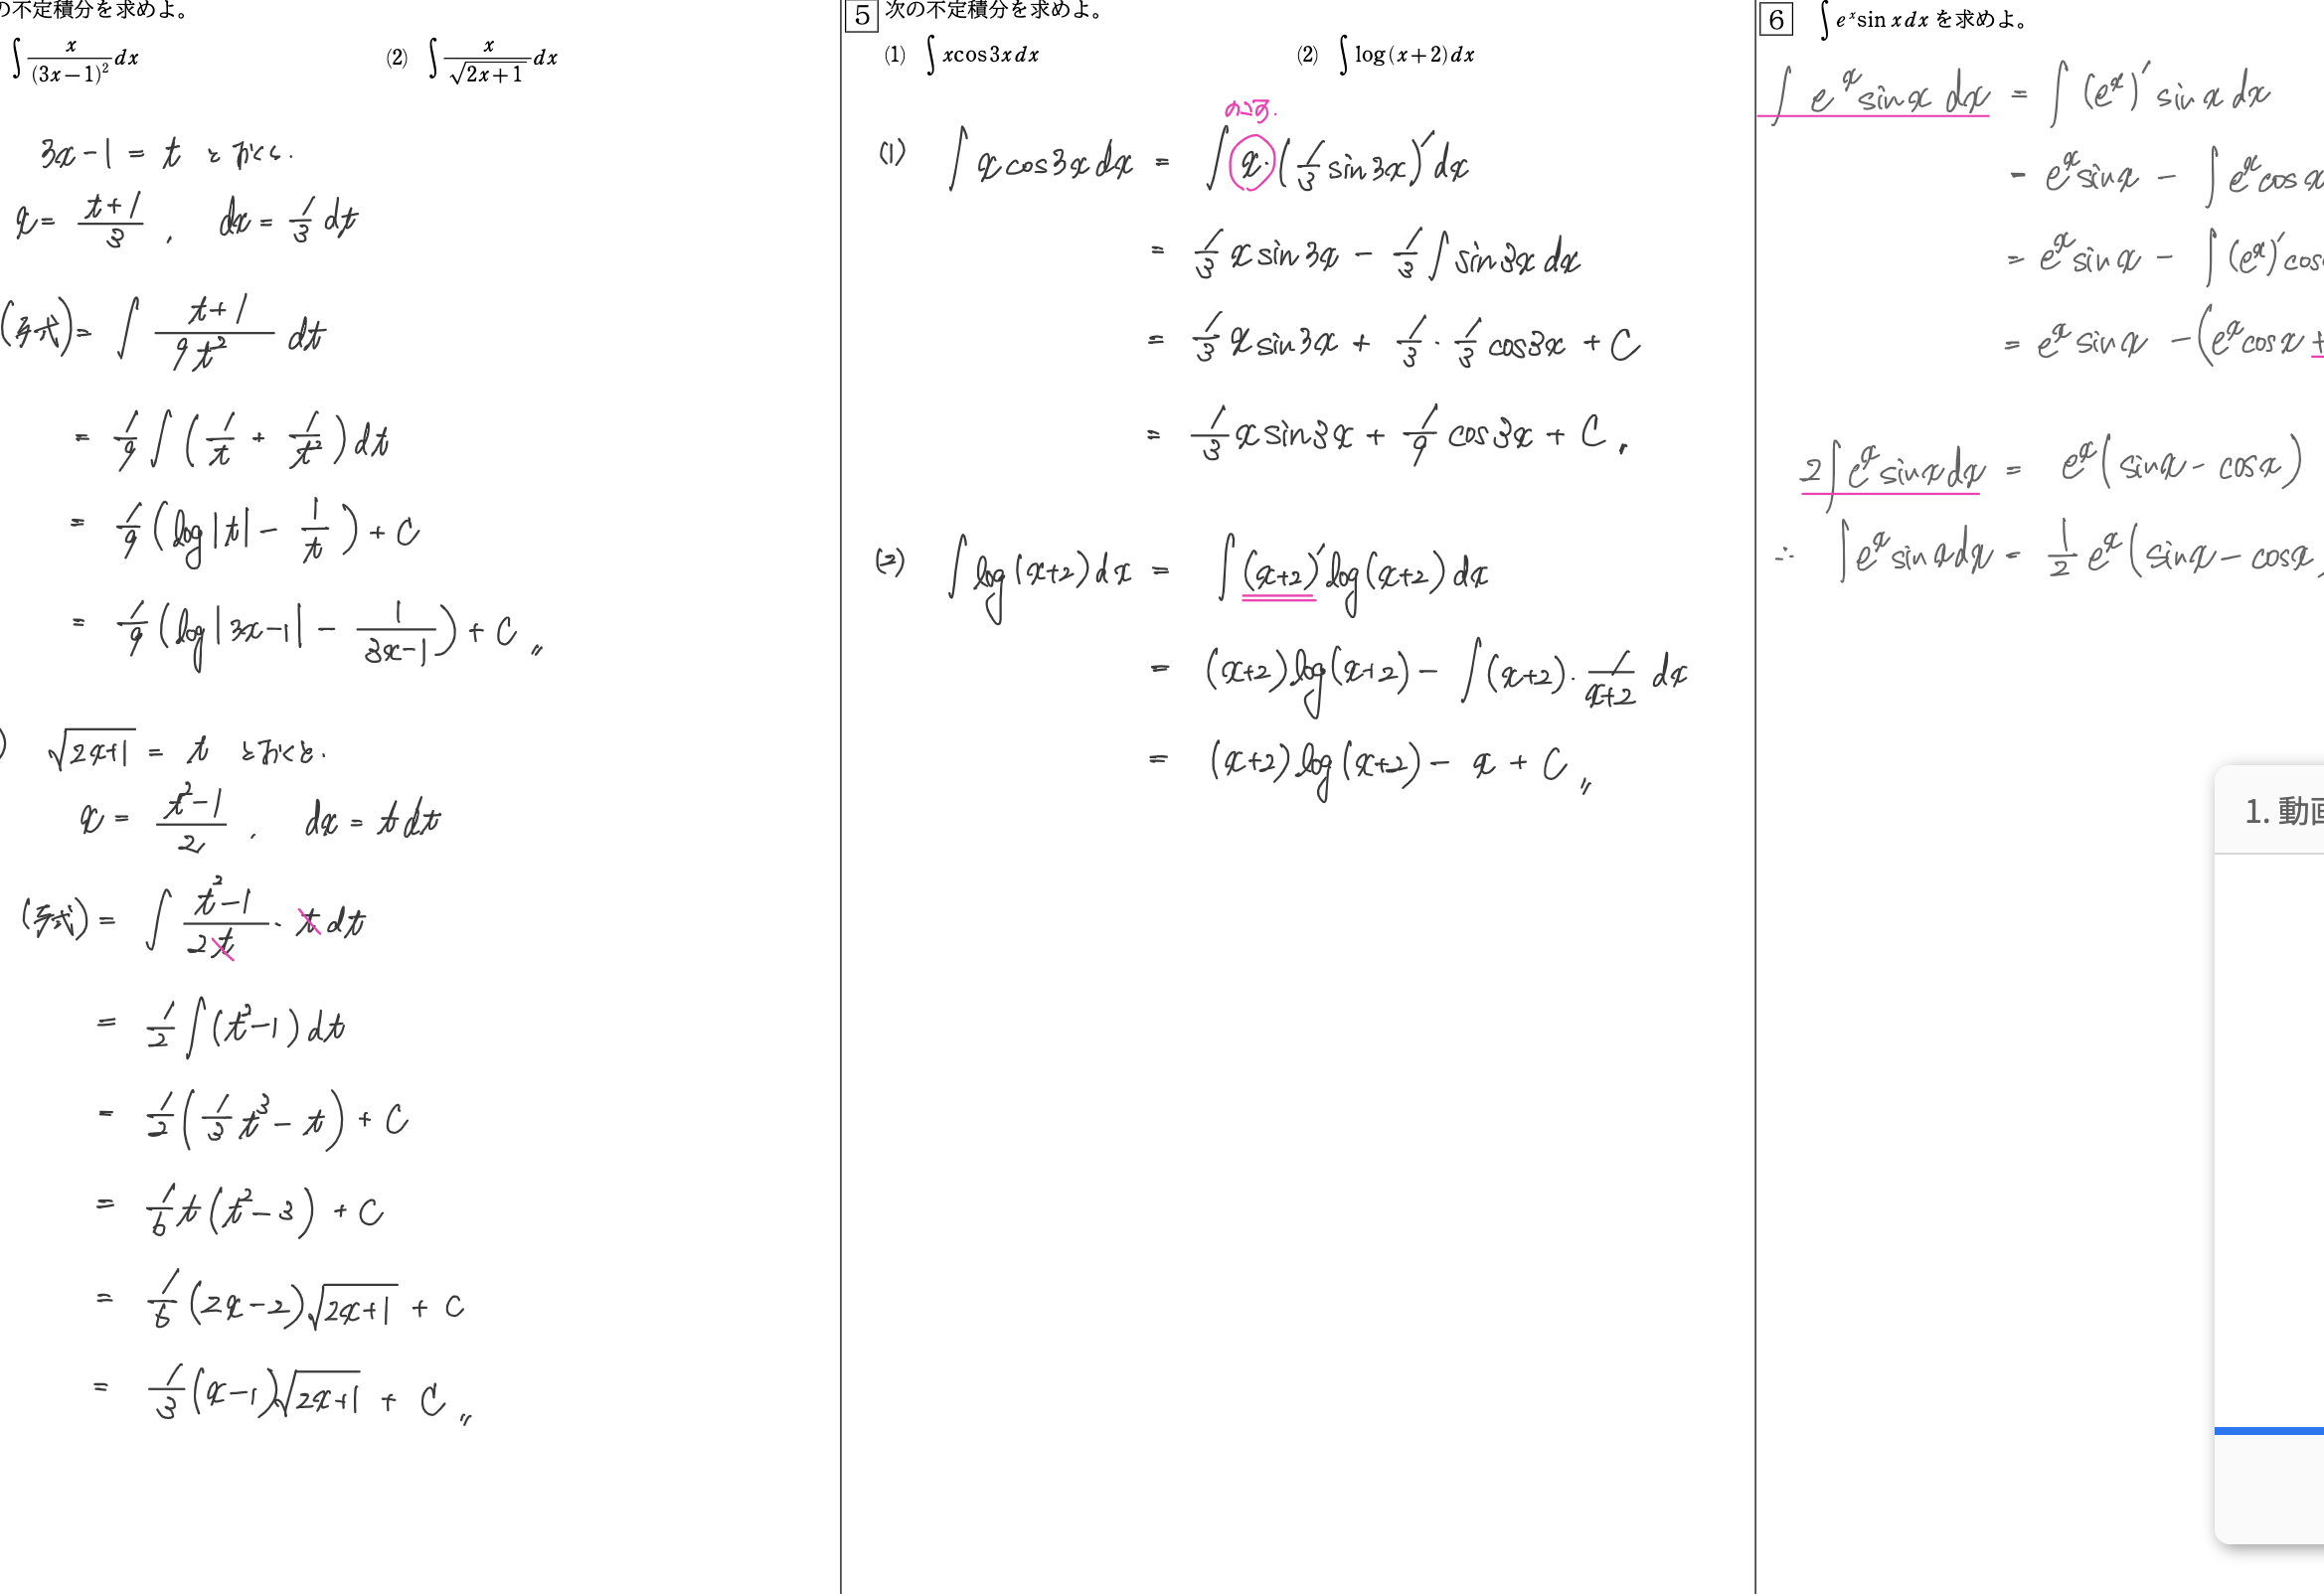 の不定積分を求めよ。
∫ x/(3x−1)² dx (2) ∫ x/√(2x+1) dx
3x−1 = t とおくと.
x = (t+1)/3 , dx = 1/3 dt
(与式) = ∫ (t+1)/(9t²) dt
= 1/9 ∫ (1/t + 1/t²) dt
= 1/9 (log|t| − 1/t) + C
= 1/9 (log|3x−1| − 1/(3x−1)) + C 〃
) √(2x+1) = t とおくと.
x = (t²−1)/2 , dx = t dt
(与式) = ∫ (t²−1)/(2t) · t dt
= 1/2 ∫ (t²−1) dt
= 1/2 (1/3 t³ − t) + C
= 1/6 t (t²−3) + C
= 1/6 (2x−2)√(2x+1) + C
= 1/3 (x−1)√(2x+1) + C 〃
5 次の不定積分を求めよ。
(1) ∫ x cos 3x dx (2) ∫ log (x+2) dx
のこす.
(1) ∫ x cos3x dx = ∫ x·(1/3 sin3x)′ dx
= 1/3 x sin3x − 1/3 ∫ sin3x dx
= 1/3 x sin3x + 1/3 · 1/3 cos3x + C
= 1/3 x sin3x + 1/9 cos3x + C 〃
(2) ∫ log(x+2) dx = ∫ (x+2)′ log(x+2) dx
= (x+2) log(x+2) − ∫ (x+2) · 1/(x+2) dx
= (x+2) log(x+2) − x + C 〃
6 ∫ eˣ sin x dx を求めよ。
∫ eˣ sinx dx = ∫ (eˣ)′ sinx dx
= eˣ sinx − ∫ eˣ cosx
= eˣ sinx − ∫ (eˣ)′ cos
= eˣ sinx − (eˣ cosx +
2∫ eˣ sinx dx = eˣ (sinx − cosx)
∴ ∫ eˣ sinx dx = 1/2 eˣ (sinx − cosx)
1. 動画